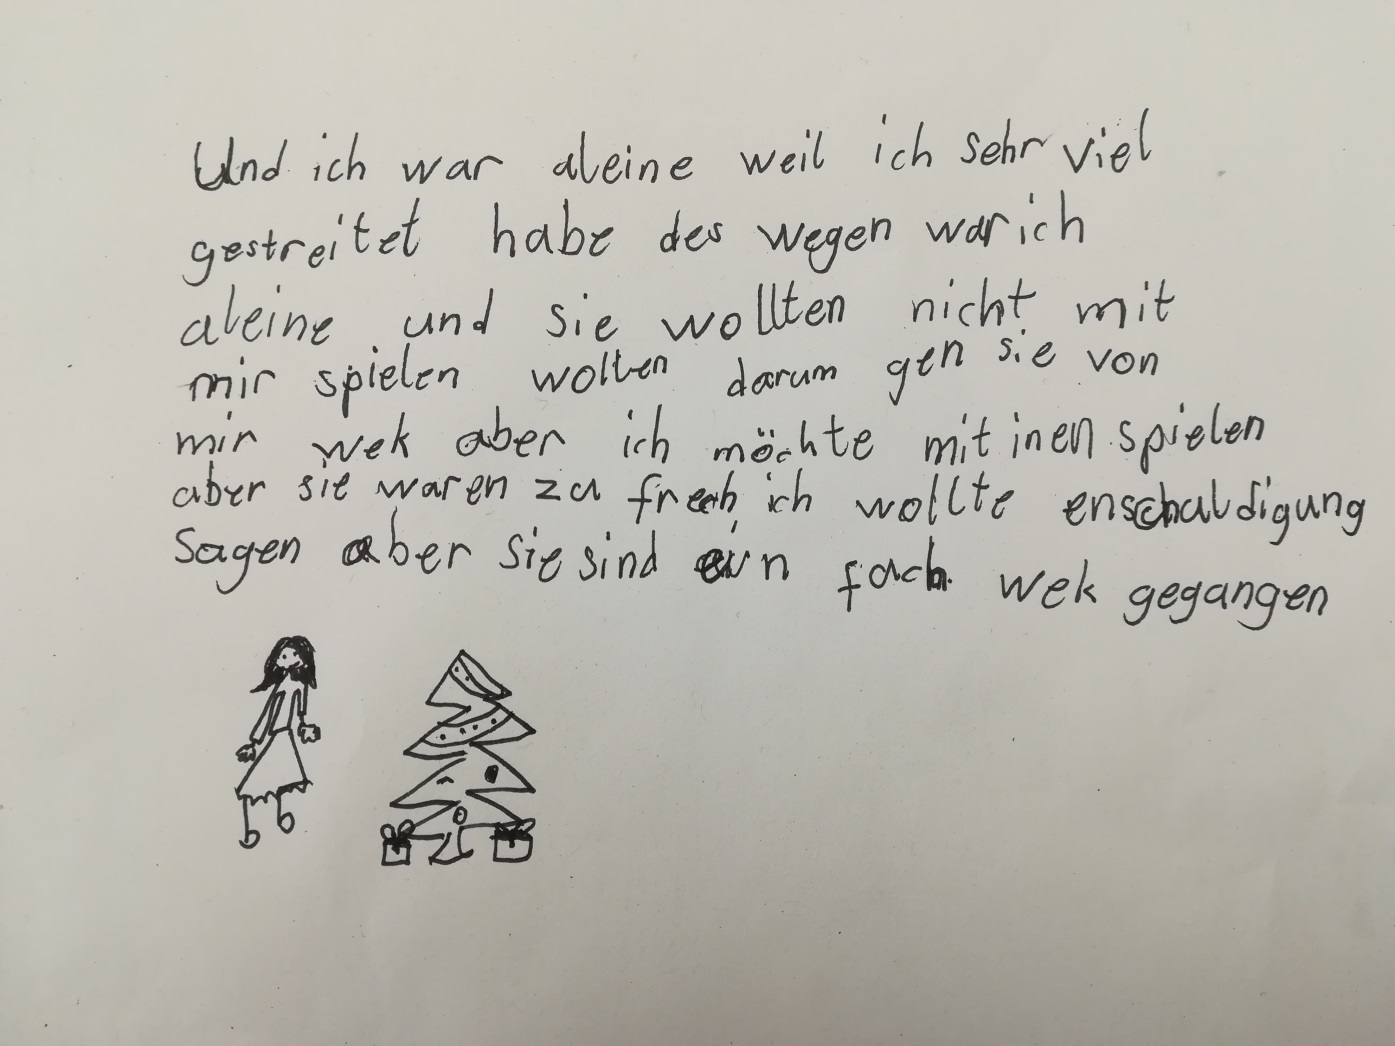 Und ich war aleine weil ich sehr viel
gestreitet habe des wegen war ich
aleine und sie wollten nicht mit
mir spielen wollten darum gen sie von
mir wek aber ich möchte mit inen spielen
aber sie waren zu frech ich wollte enschuldigung
Sagen aber sie sind ein fach wek gegangen